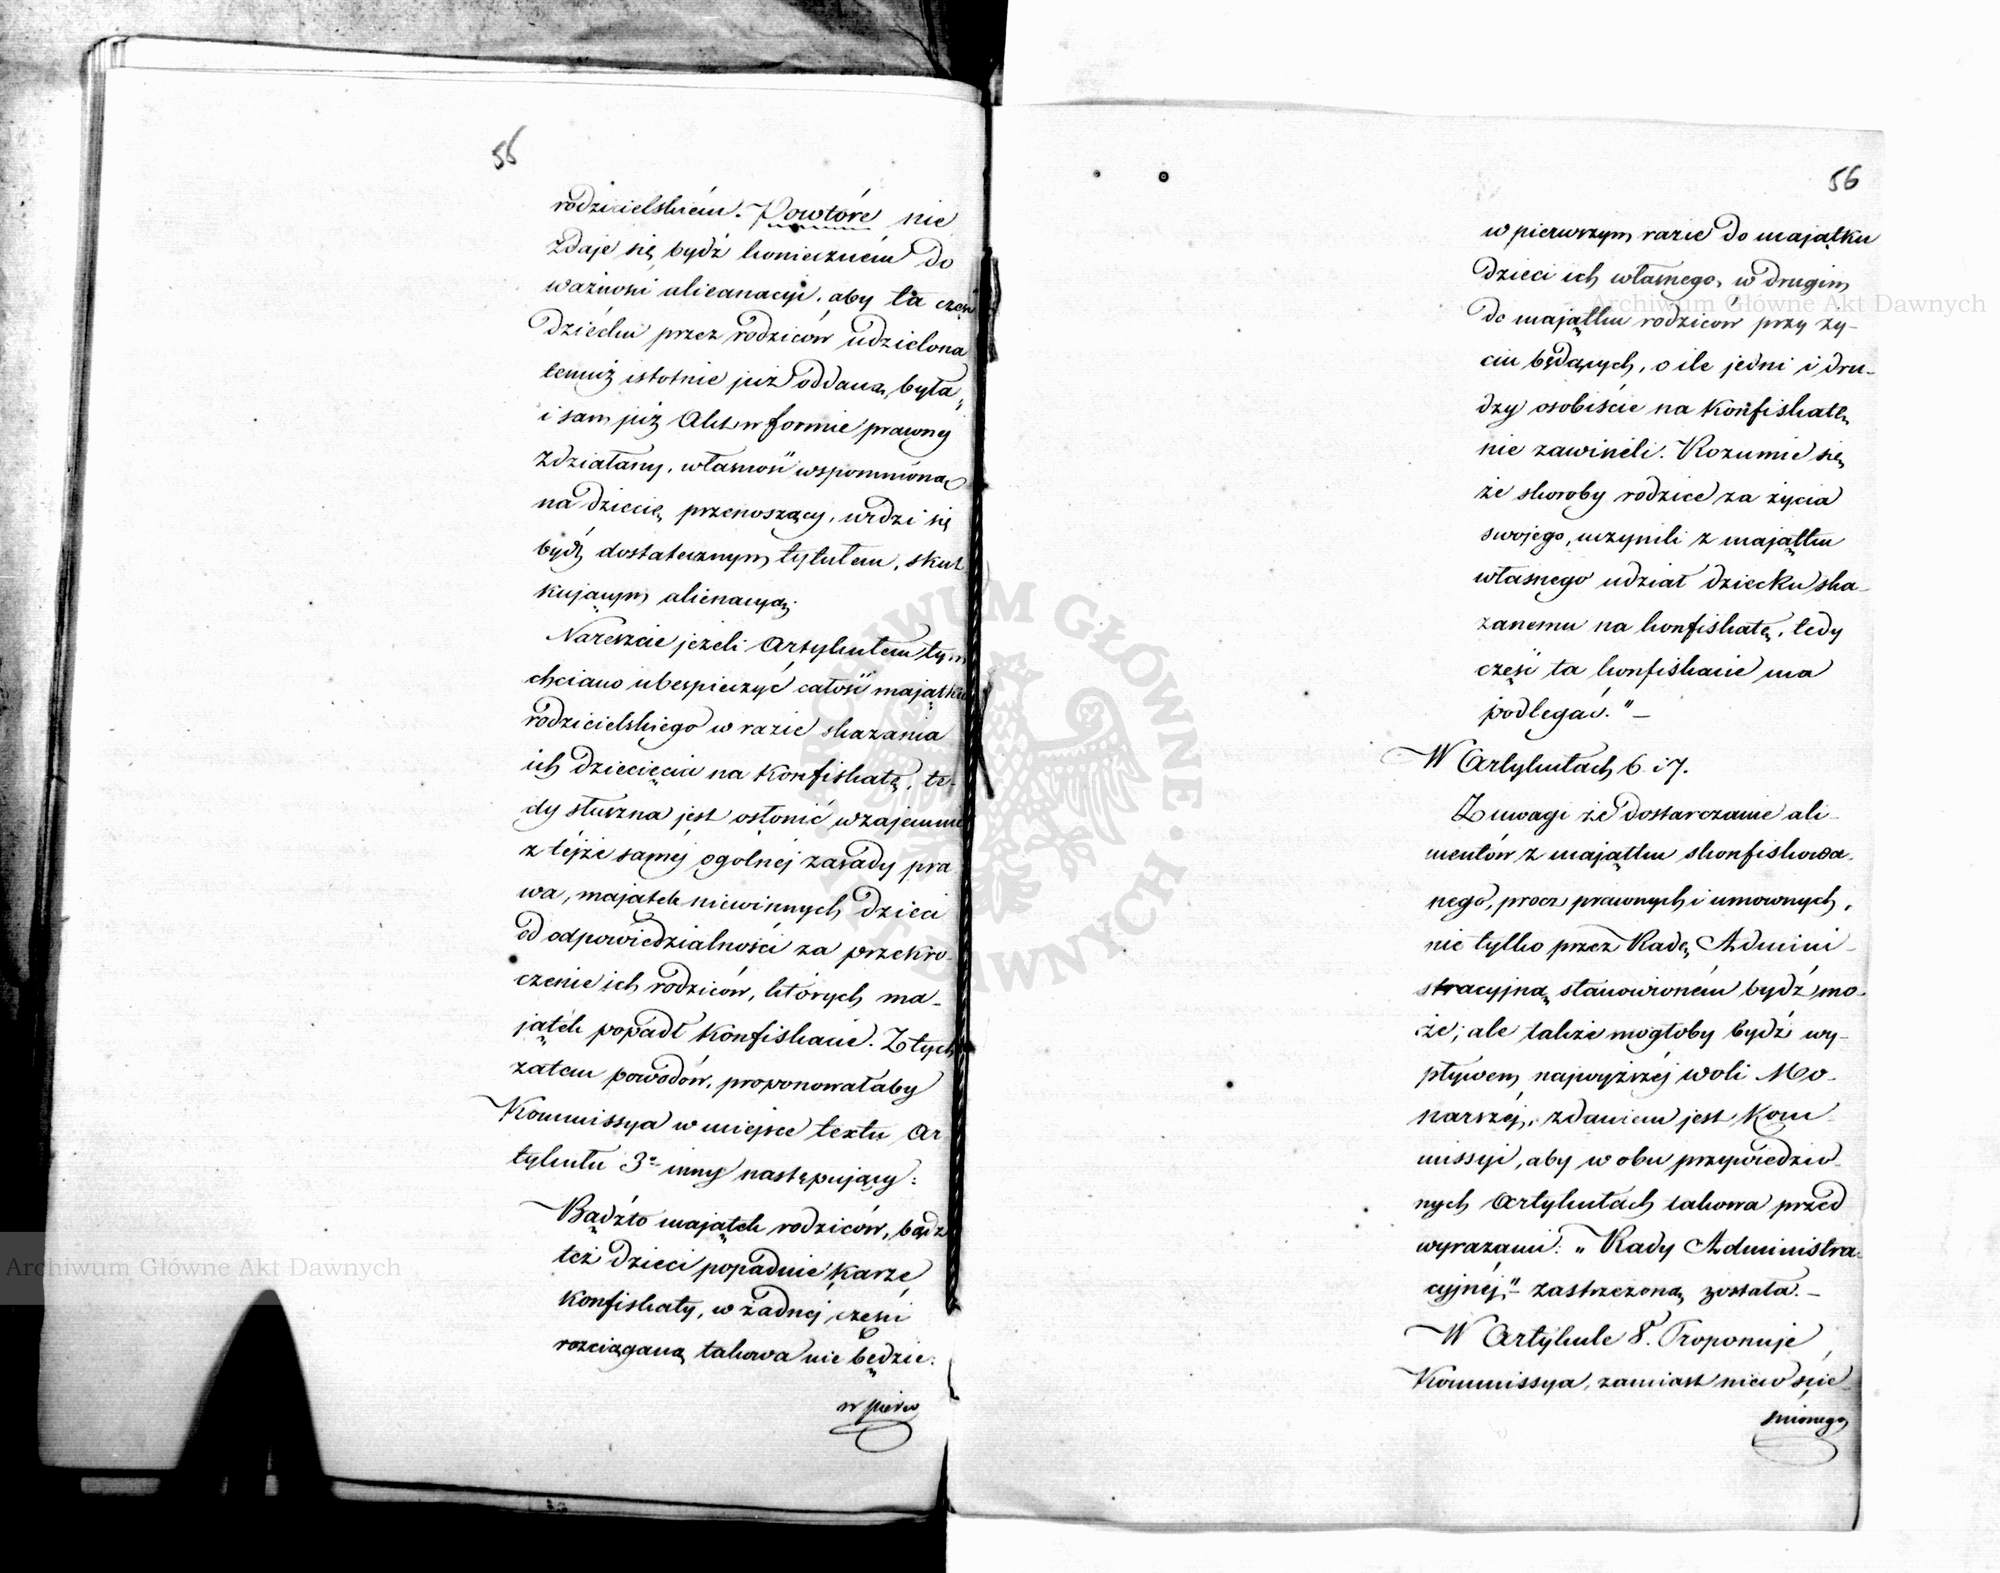 56
rodzicielskiém. Powtóre nie
zdaje się bydź konieczném do
ważności alieanacyi, aby ta część
dziecku przez rodziców udzielona
temuż istotnie już oddaną była,
i sam już Akt w formie prawnej
zdziałany, własność wspomnioną
na dziecię przenoszący, widzi się
bydź dostatecznym tytułem, skut
kującym alienacyą.
Nareszcie jeżeli Artykułem tym
chciano ubespieczyć całość majątku
rodzicielskiego w razie skazania
ich dziecięcia na konfiskatę, te-
dy słuszna jest osłonić wzajemnie
z téjże saméj ogólnéj zasady pra
wa, majątek niewinnych dzieci
od odpowiedzialności za przekro-
czenie ich rodziców, których ma-
jątek popadł konfiskacie. Z tych
zatem powodów, proponowałaby
Kommissya w miejsce textu Ar
tykułu 3º inny następujący:
Bądźto majątek rodziców, bądź
też dzieci popadnie karze
konfiskaty, w żadnéj części
rozciąganą takowa nie będzie:
w pierw
56
w pierwszym razie do majątku
dzieci ich własnego, w drugim
do majątku rodziców przy ży-
ciu będących, o ile jedni i dru-
dzy osobiście na konfiskatę
nie zawinili. Rozumie się
że skoroby rodzice za życia
swojego, uczynili z majątku
własnego udział dziecku ska-
zanemu na konfiskatę, tedy
część ta konfiskacie ma
podlegać." —
W Artykułach 6. i 7.
Z uwagi że dostarczanie ali-
mentów z majątku skonfiskowa-
nego, procz prawnych i umownych,
nie tylko przez Radę Admini-
stracyjną stanowioném bydź mo-
że; ale także mogłoby bydź wy-
pływem najwyższéj woli Mo-
narszéj, zdaniem jest Kom-
missyi, aby w obu przywiedzio-
nych Artykułach takowa przed
wyrazami: „Rady Administra-
cyjnéj" – zastrzeżoną została. –
W Artykule 8. Proponuje
Kommissya, zamiast niewście-
śnionego
Archiwum Główne Akt Dawnych
Archiwum Główne Akt Dawnych
ARCHIWUM GŁÓWNE AKT DAWNYCH